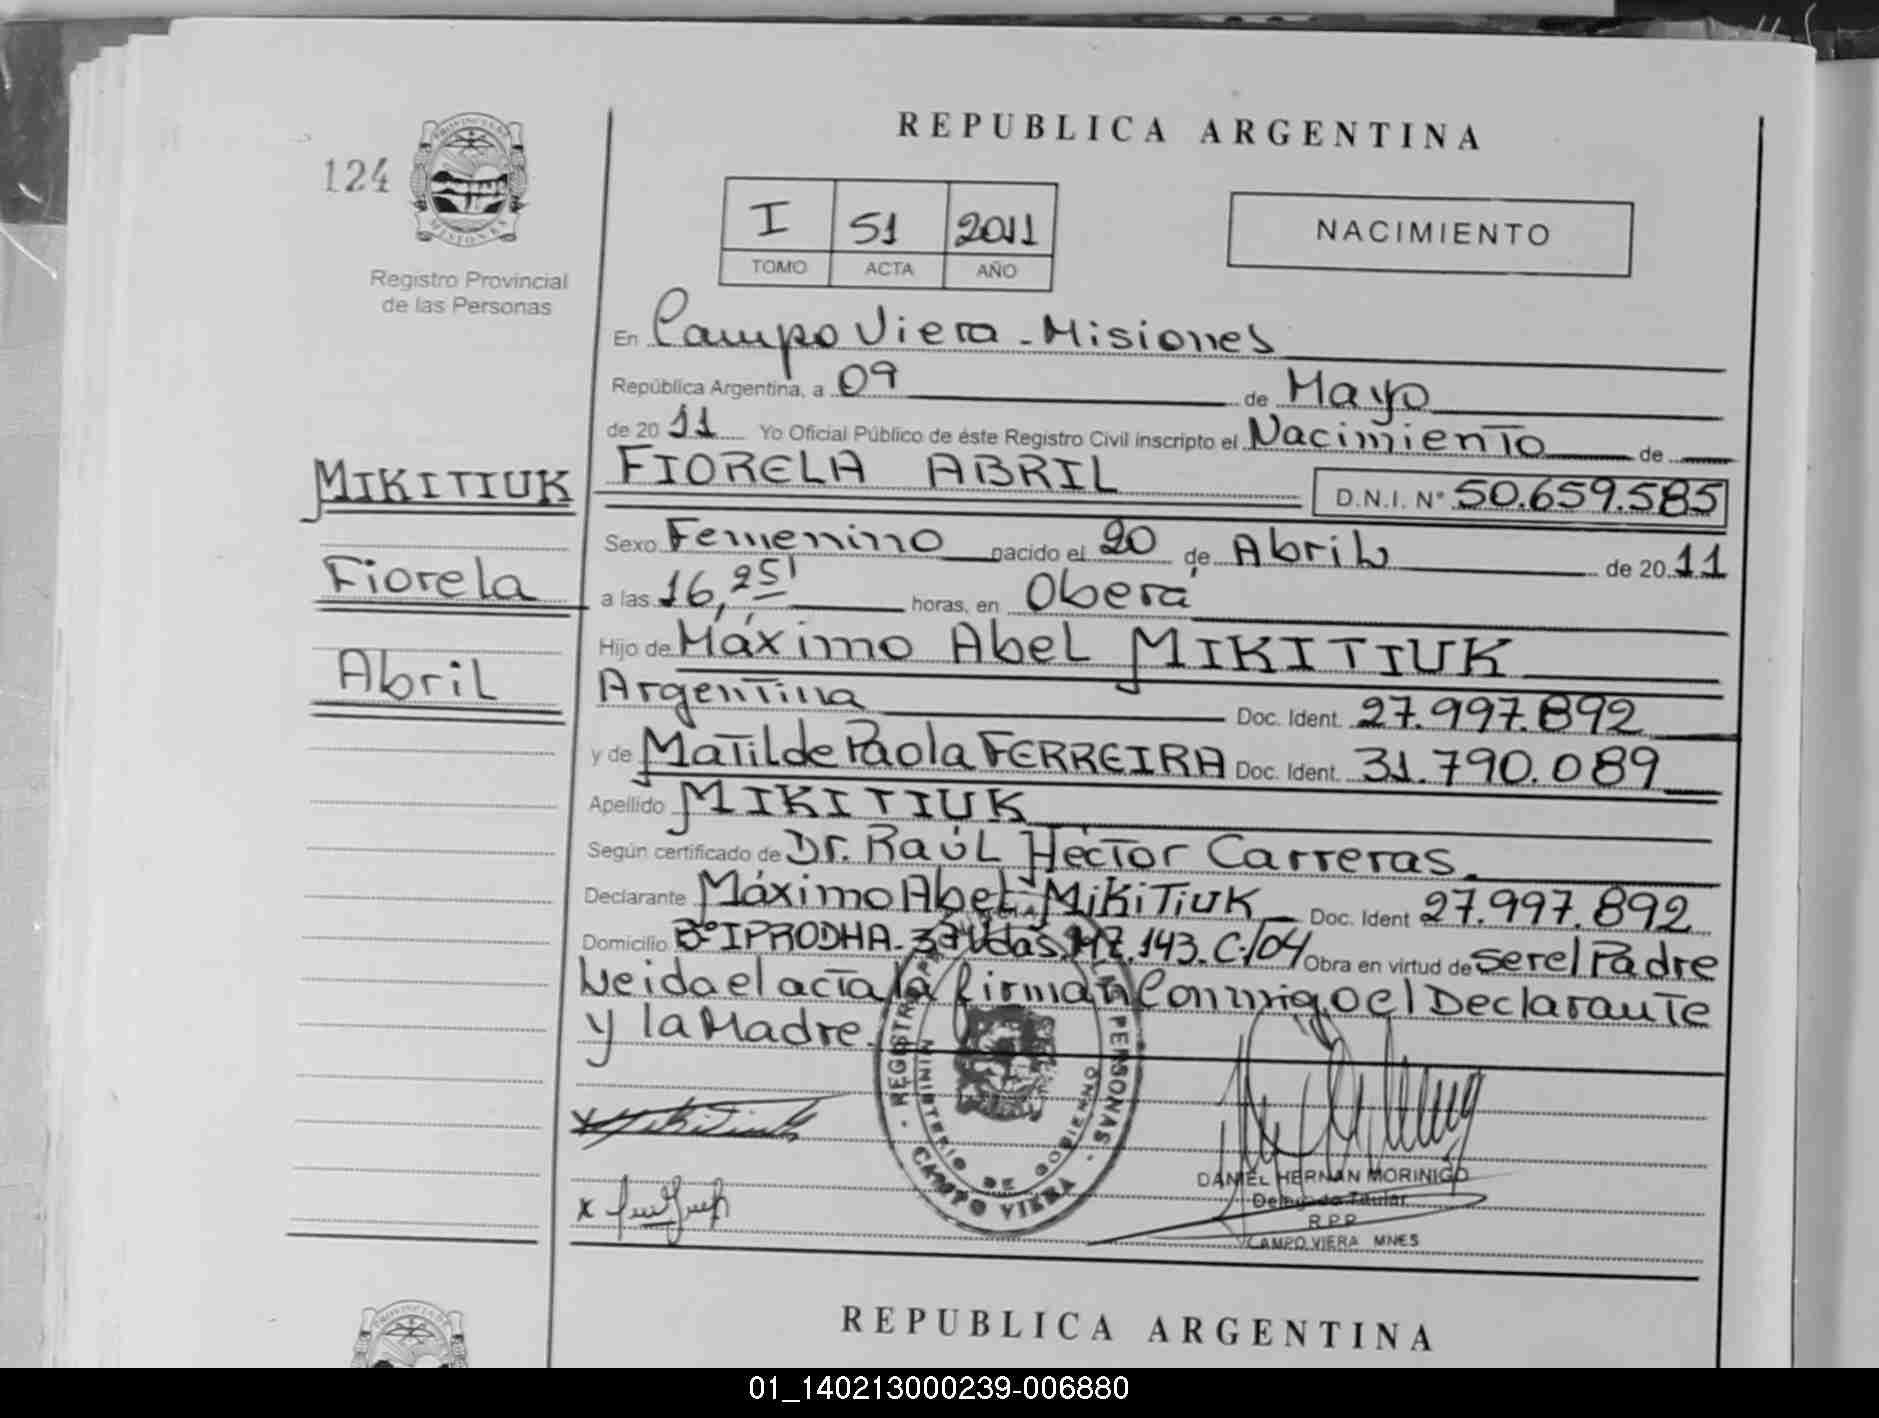 REPUBLICA ARGENTINA
124
PROVINCIA DE
MISIONES
Registro Provincial
de las Personas
I 51 2011
TOMO ACTA AÑO
NACIMIENTO
En Campo Viera - Misiones
República Argentina, a 09 de Mayo
de 2011 Yo Oficial Público de éste Registro Civil inscripto el Nacimiento de
MIKITIUK FIORELA ABRIL D.N.I. N° 50.659.585
Sexo Femenino nacido el 20 de Abril de 2011
Fiorela a las 16,25' horas, en Oberá
Hijo de Máximo Abel MIKITIUK
Abril Argentina Doc. Ident. 27.997.892
y de Matilde Paola FERREIRA Doc. Ident. 31.790.089
Apellido MIKITIUK
Según certificado de Dr. Raúl Héctor Carreras.
Declarante Máximo Abel MiKiTiUK Doc. Ident 27.997.892
Domicilio B° IPRODHA - 37 Vdas. MZ. 143. C/04 Obra en virtud de ser el Padre
Leida el acta la firman Conmigo el Declarante
y la Madre.
REGISTRO PERSONAS
MINISTERIO DE GOBIERNO
CAMPO VIERA
x Mikitiuk
x
DANIEL HERNAN MORINIGO
Delegado Titular
R.P.P.
CAMPO VIERA MNES
PROVINCIA DE
REPUBLICA ARGENTINA
01_140213000239-006880